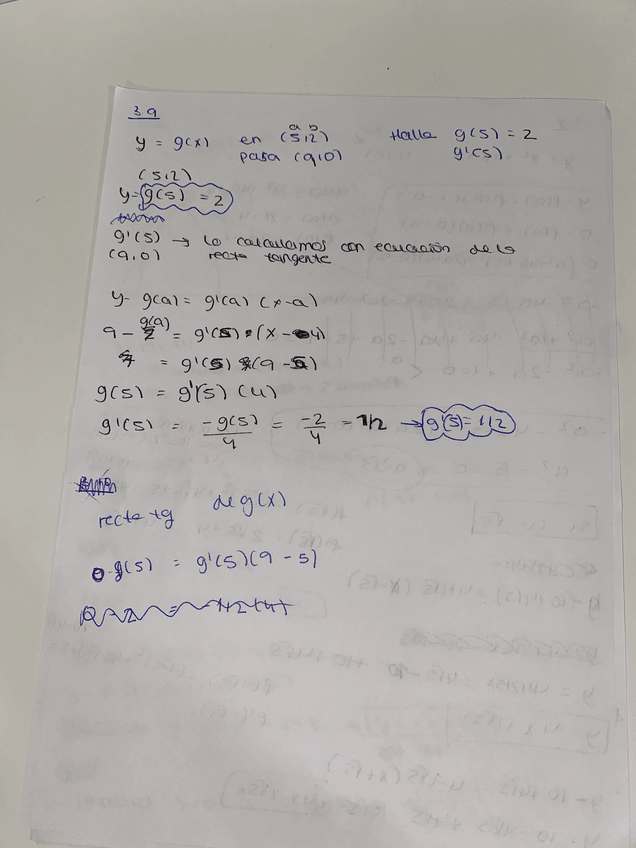 39
a b
y = g(x) en (5,2) Halla g(5) = 2
pasa (9,0) g'(5)
(5,2)
y = g(5) = 2
g'(5) → lo calculamos con ecuación de la
(9,0) recta tangente
y - g(a) = g'(a) (x-a)
g(a)
9 - = g'(5) • (x - 4)
= g'(5) (9 - 5)
g(5) = g'(5) (4)
g'(5) = -g(5)/4 = -2/4 = 1/2 → g'(5) = 1/2
recta tg de g(x)
0 - g(5) = g'(5)(9 - 5)